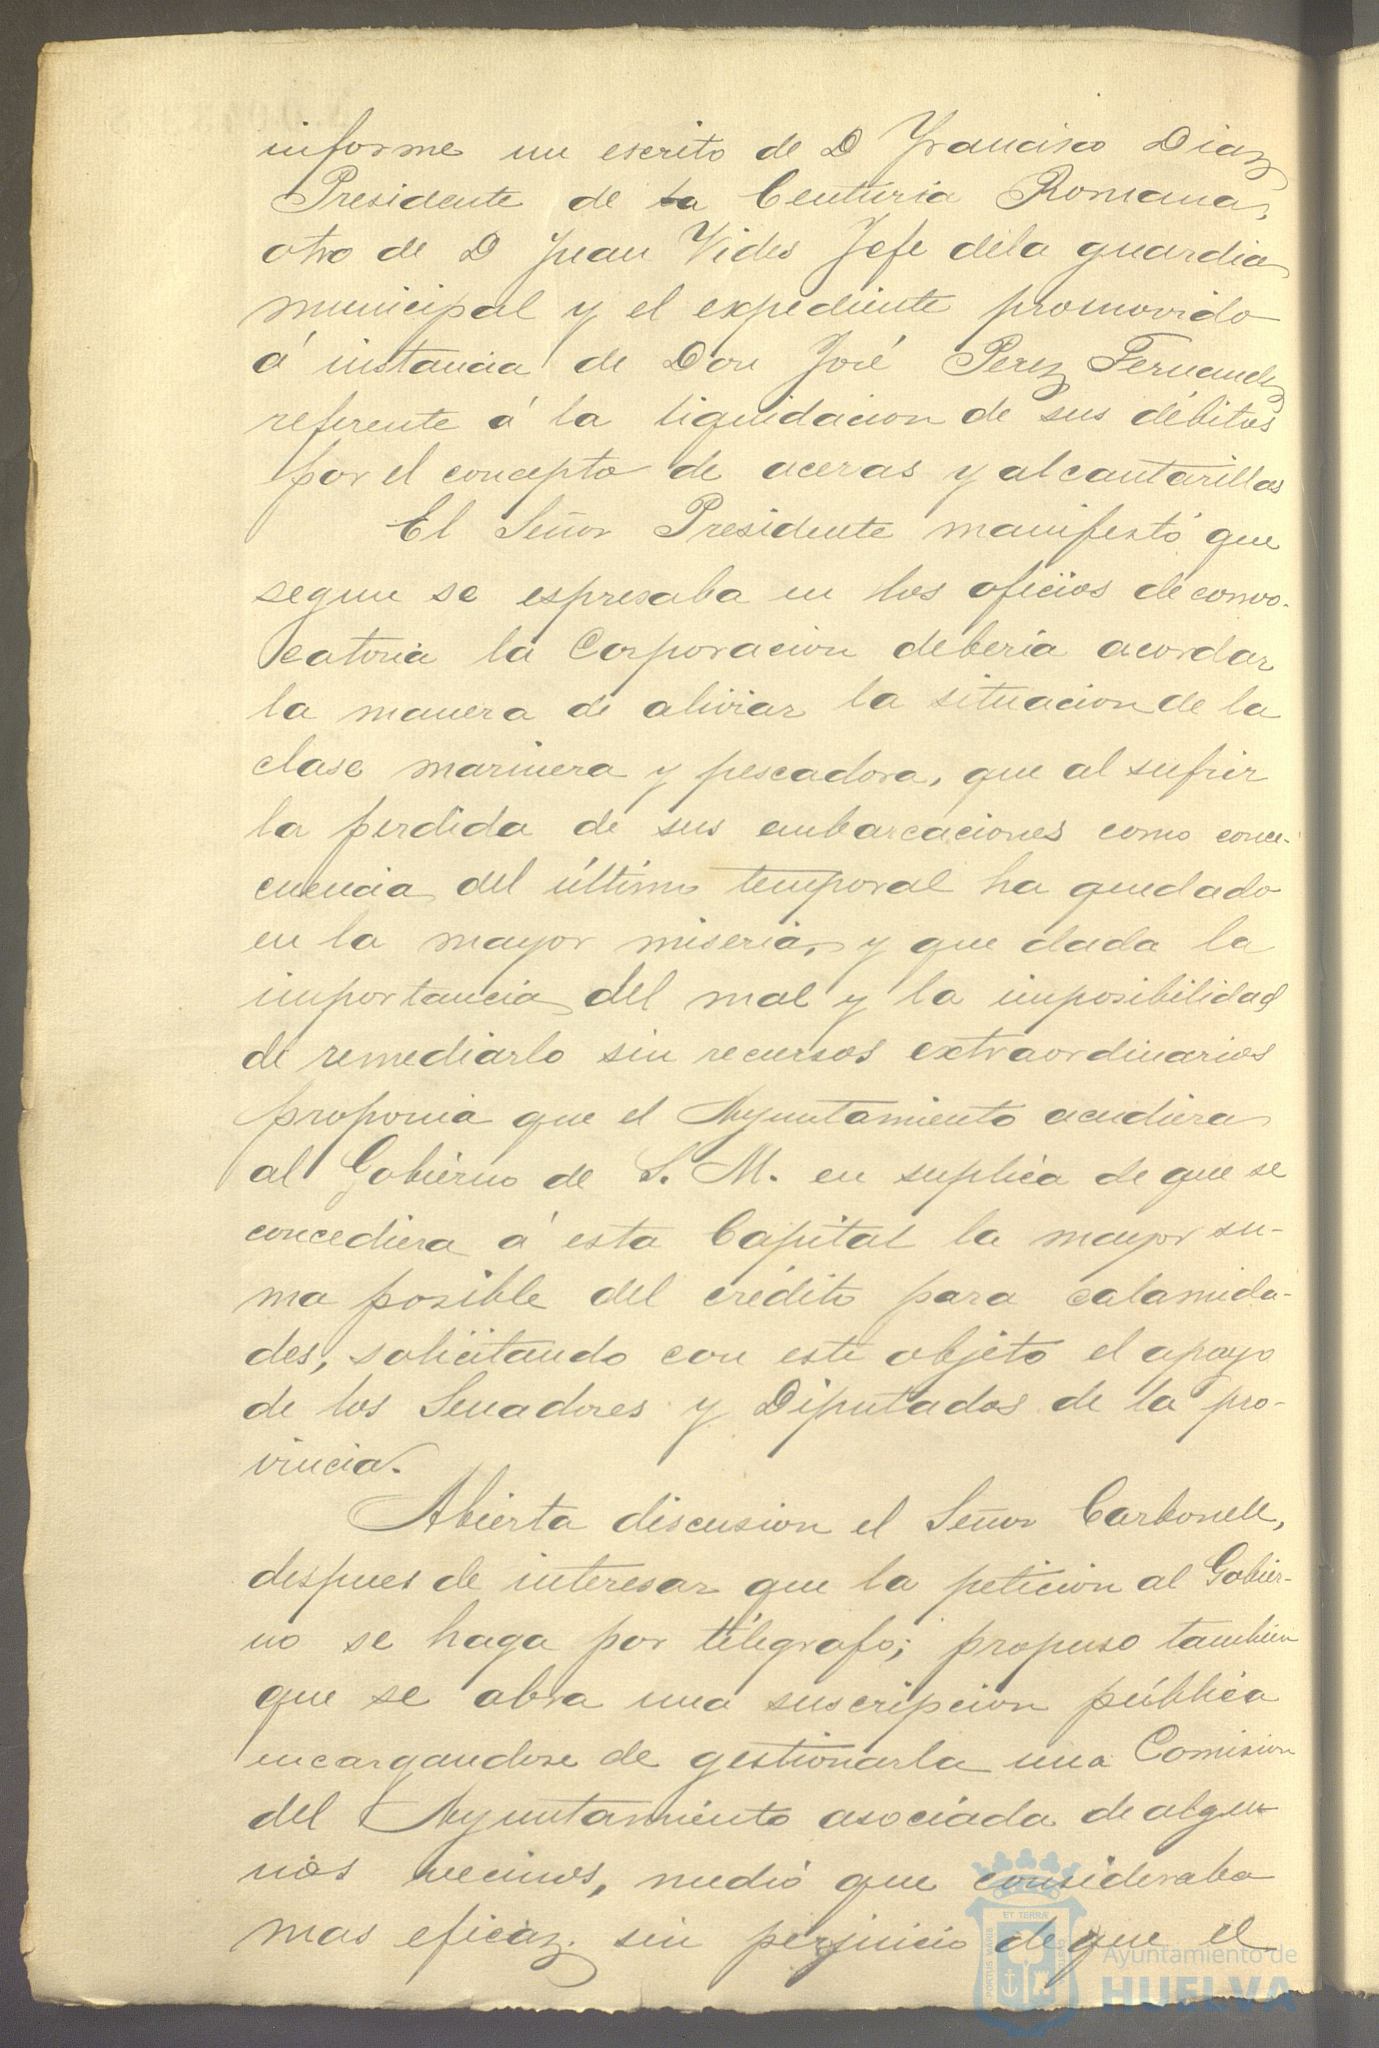 informe un escrito de D Francisco Diaz
Presidente de la Centuria Romana,
otro de D Juan Vides Jefe dela guardia
municipal y el expediente promovido
á instancia de Don José Perez Fernandez
referente á la liquidacion de sus débitos
por el concepto de aceras y alcantarillas
El Señor Presidente manifestó que
segun se espresaba en los oficios de convo-
catoria la Corporacion deberia acordar
la manera de aliviar la situacion de la
clase marinera y pescadora, que al sufrir
la perdida de sus embarcaciones como conce-
cuencia del último temporal ha quedado
en la mayor miseria, y que dada la
importancia del mal y la imposibilidad
de remediarlo sin recursos extraordinarios
proponia que el Ayuntamiento acudiera
al Gobierno de S. M. en suplica de que se
concediera á esta Capital la mayor su-
ma posible del crédito para calamida-
des, solicitando con este objeto el apoyo
de los Senadores y Diputados de la pro-
vincia.
Abierta discusion el Señor Carbonell,
despues de interesar que la peticion al Gobier-
no se haga por télegrafo; propuso tambien
que se abra una suscripcion pública
encargandose de gestionarla una Comision
del Ayuntamiento asociada de algu-
nos vecinos, medio que consideraba
mas eficaz. sin perjuicio de que el
PORTUS MARIS ET TERRÆ CUSTODIA
Ayuntamiento de
HUELVA